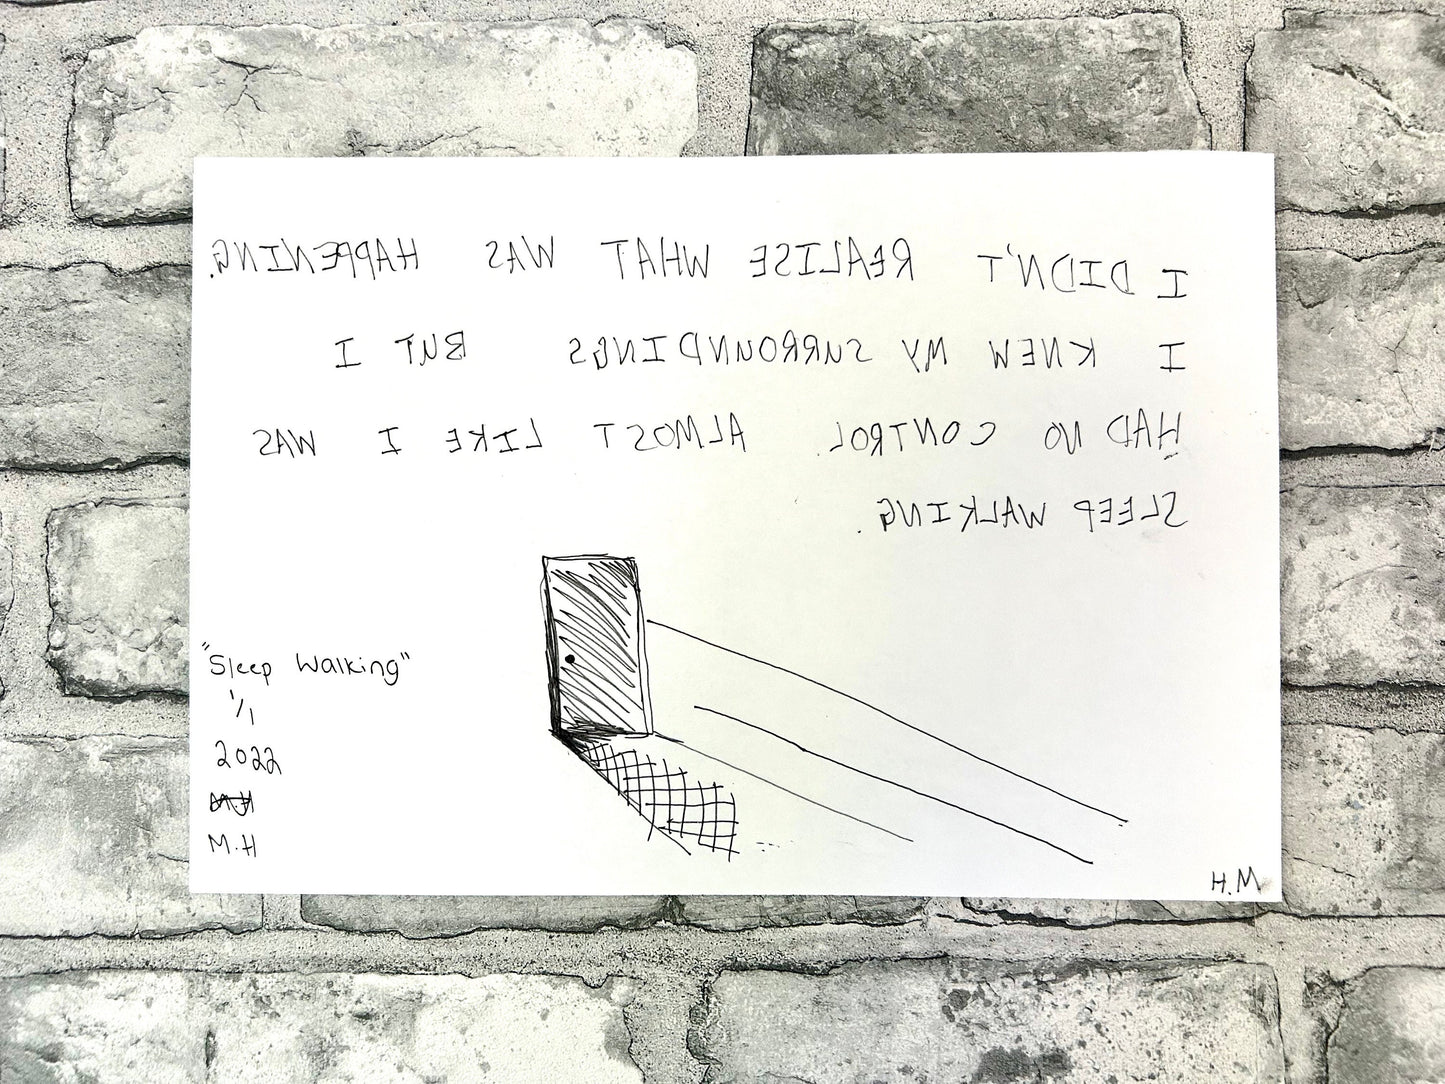 I DIDN'T REALISE WHAT WAS HAPPENING.
I KNEW MY SURROUNDINGS BUT I
HAD NO CONTROL. ALMOST LIKE I WAS
SLEEP WALKING.
"Sleep Walking"
1/1
2022
M.H
M.H
H.M